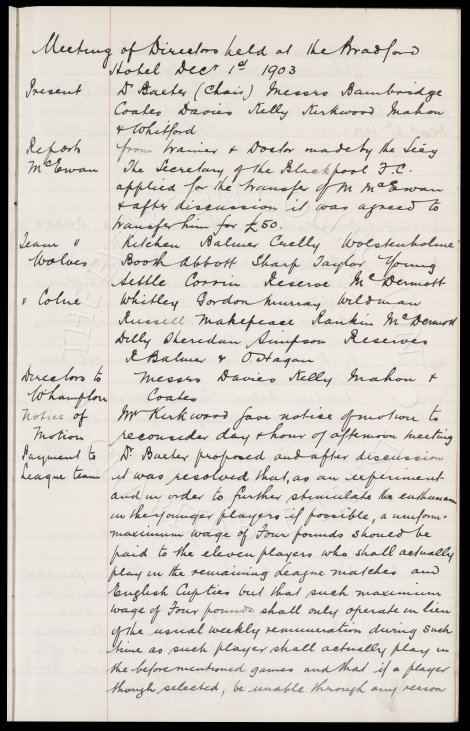 Meeting of Directors held at the Bradford
Hotel Decr 1st 1903
Present Dr Baxter (Chair) Messrs Bainbridge
Coates Davies Kelly Kirkwood Mahon
& Whitford
Reports from Trainer & Doctor made by the Secy
McEwan The Secretary of the Blackpool F.C.
applied for the transfer of M McEwan
& after discussion it was agreed to
transfer him for £50.
Team v Kitchen Balmer Crelly Wolstenholme
Wolves Booth Abbott Sharp Taylor Young
Settle Corrin Reserve McDermott
" Colne Whitley Gordon Murray Wildman
Russell Makepeace Rankin McDermott
Dilly Sheridan Simpson Reserves
R Balmer & O'Hagan
Directors to Messrs Davies Kelly Mahon &
W'hampton Coates
Notice of Mr Kirkwood gave notice of motion to
Motion reconsider day & hour of afternoon meeting
Payment to Dr Baxter proposed and after discussion
League team it was resolved that, as an experiment
and in order to further stimulate the enthusiasm
in the younger players if possible, a uniform
maximum wage of Four pounds should be
paid to the eleven players who shall actually
play in the remaining League matches and
English Cup ties but that such maximum
wage of Four pounds shall only operate in lieu
of the usual weekly remuneration during such
time as such player shall actually play in
the before mentioned games and that if a player
though selected, be unable through any reason